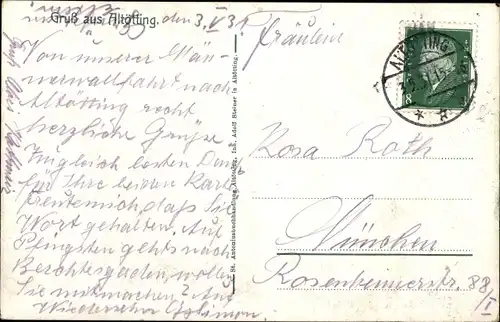 Gruß aus Altötting. den 3.V 31
Von unserer Män-
nerwallfahrt nach
Altötting recht
herzliche Grüße!
Zugleich besten Dank
für Ihre beiden Karten
freute mich, daß Sie
Wort gehalten. Auf
Pfingsten gehts nach
Berchtesgaden, wollen
Sie mitmachen? Auf
Wiedersehn
St. Antoniusbuchhandlung Altötting, Inh. Adolf Steiner in Altötting.
ALTÖTTING
8
Fräulein
Rosa Roth
München
Rosenheimerstr. 88/I